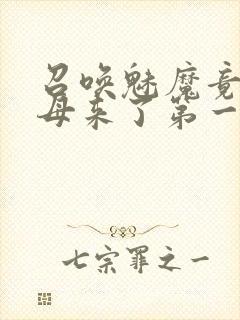 召唤魅魔竟
母来了第一
七宗罪之一